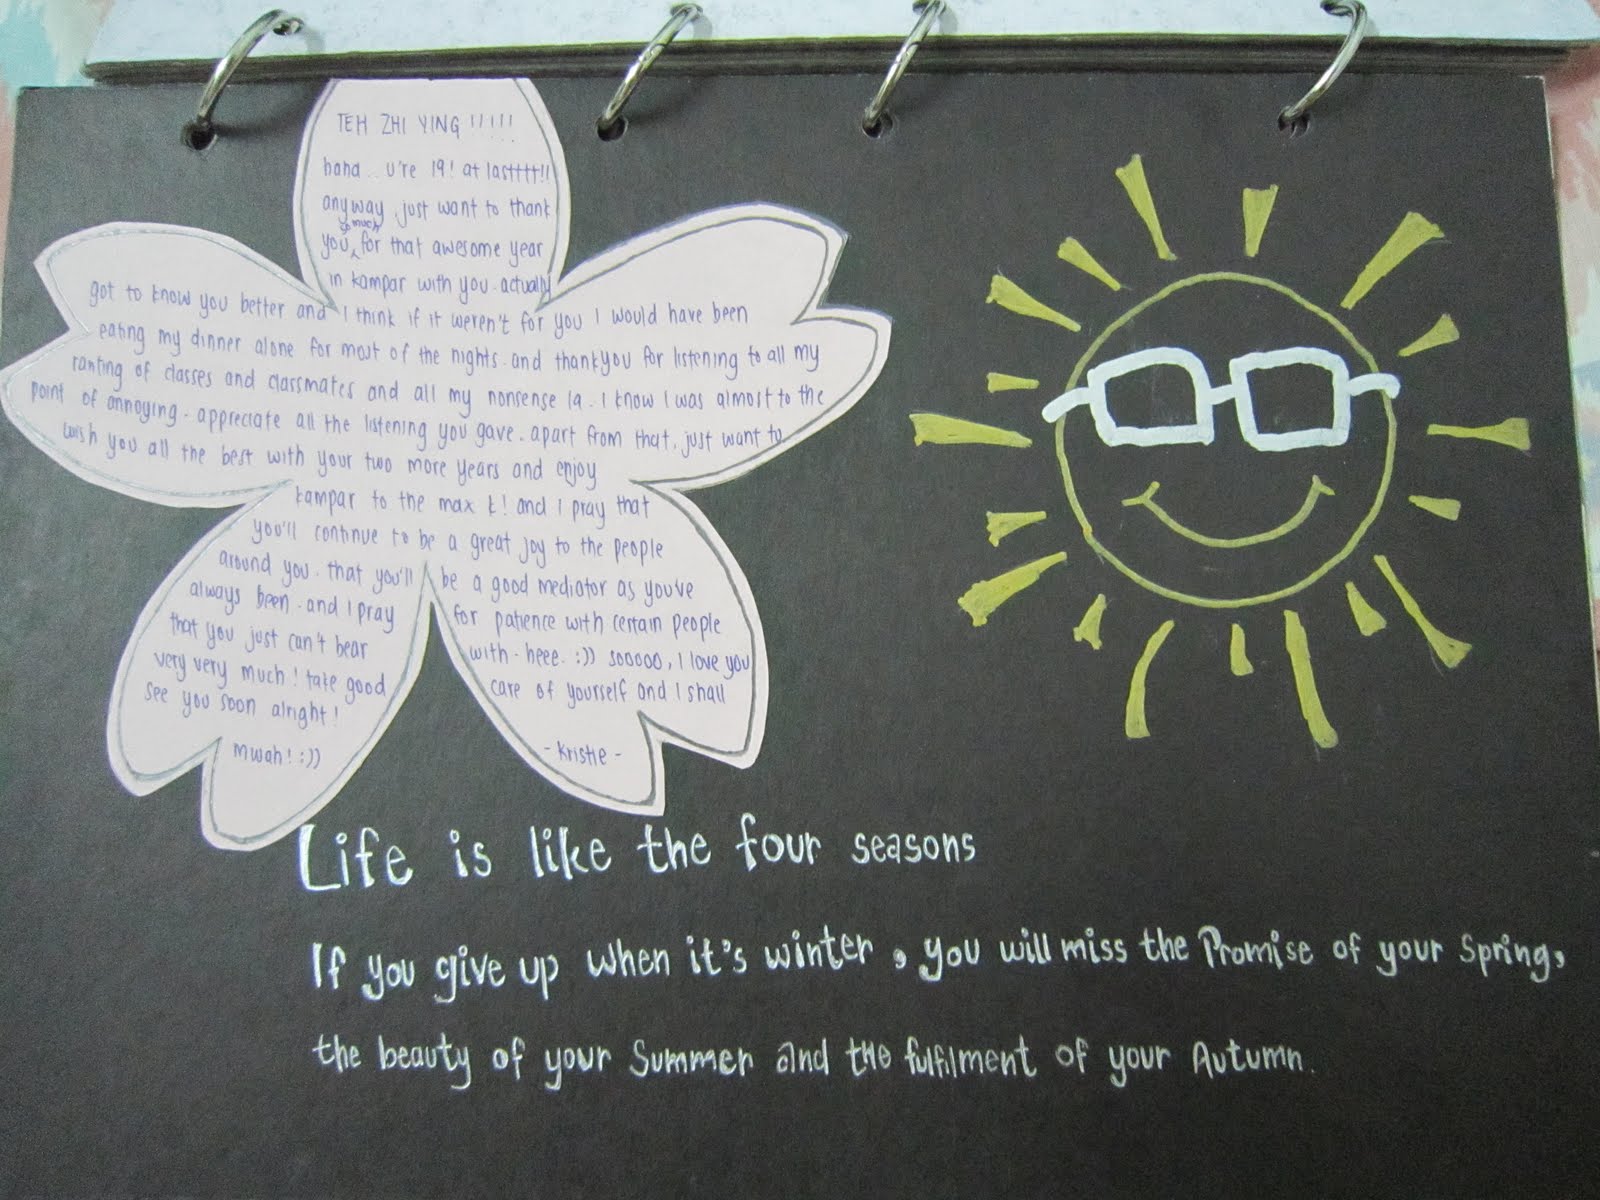 TEH ZHI YING !!!!!
haha .. u're 19! at lastttt!!
anyway, just want to thank
you so much for that awesome year
in kampar with you. actually
got to know you better and I think if it weren't for you I would have been
eating my dinner alone for most of the nights. and thankyou for listening to all my
ranting of classes and classmates and all my nonsense la. I know I was almost to the
point of annoying. appreciate all the listening you gave. apart from that, just want to
wish you all the best with your two more years and enjoy
kampar to the max k! and I pray that
you'll continue to be a great joy to the people
around you. that you'll be a good mediator as you've
always been. and I pray for patience with certain people
that you just can't bear with. heee. :)) sooooo, I love you
very very much! take good care of yourself and I shall
see you soon alright!
Mwah! :)) - Kristie -
Life is like the four seasons
If you give up when it's winter, you will miss the Promise of your Spring,
the beauty of your Summer and the fulfilment of your Autumn.